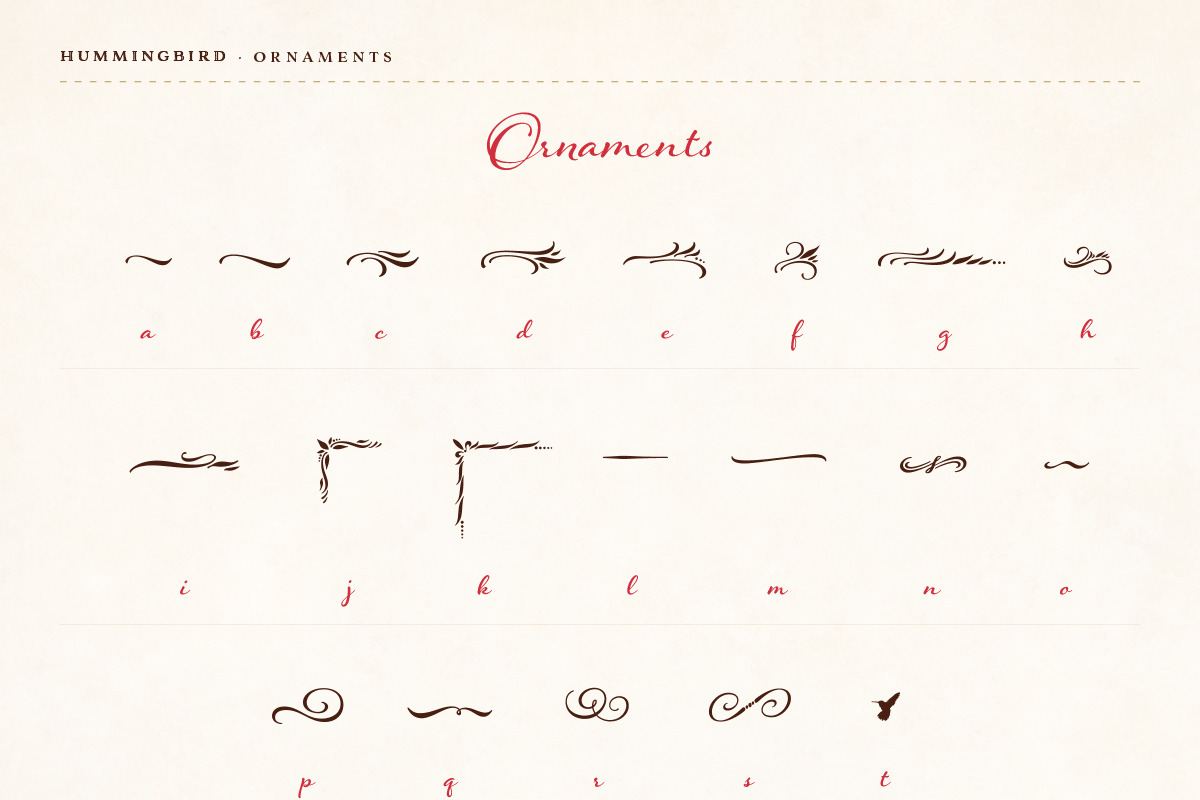 HUMMINGBIRD · ORNAMENTS
Ornaments
a b c d e f g h
i j k l m n o
p q r s t